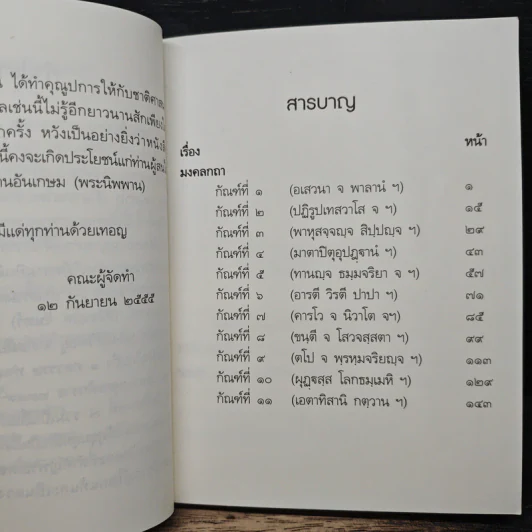 ได้ทำคุณูปการให้กับชาติศาส
ลเช่นนี้ไม่รู้อีกยาวนานสักเพียง
กครั้ง หวังเป็นอย่างยิ่งว่าหนัง
นี้คงจะเกิดประโยชน์แก่ท่านผู้ส
านอันเกษม (พระนิพพาน)
มีแด่ทุกท่านด้วยเทอญ
คณะผู้จัดทำ
๑๒ กันยายน ๒๕๕๕
สารบาญ
เรื่อง หน้า
มงคลกถา
กัณฑ์ที่ ๑ (อเสวนา จ พาลานํ ฯ) ๑
กัณฑ์ที่ ๒ (ปฏิรูปเทสวาโส จ ฯ) ๑๕
กัณฑ์ที่ ๓ (พาหุสจฺจญฺจ สิปฺปญฺจ ฯ) ๒๙
กัณฑ์ที่ ๔ (มาตาปิตุอุปฏฺฐานํ ฯ) ๔๓
กัณฑ์ที่ ๕ (ทานญฺจ ธมฺมจริยา จ ฯ) ๕๗
กัณฑ์ที่ ๖ (อารตี วิรตี ปาปา ฯ) ๗๑
กัณฑ์ที่ ๗ (คารโว จ นิวาโต จฯ) ๘๕
กัณฑ์ที่ ๘ (ขนฺตี จ โสวจสฺสตา ฯ) ๙๙
กัณฑ์ที่ ๙ (ตโป จ พฺรหฺมจริยญฺจ ฯ) ๑๑๓
กัณฑ์ที่ ๑๐ (ผุฏฺฐสฺส โลกธมฺเมหิ ฯ) ๑๒๙
กัณฑ์ที่ ๑๑ (เอตาทิสานิ กตฺวาน ฯ) ๑๔๓